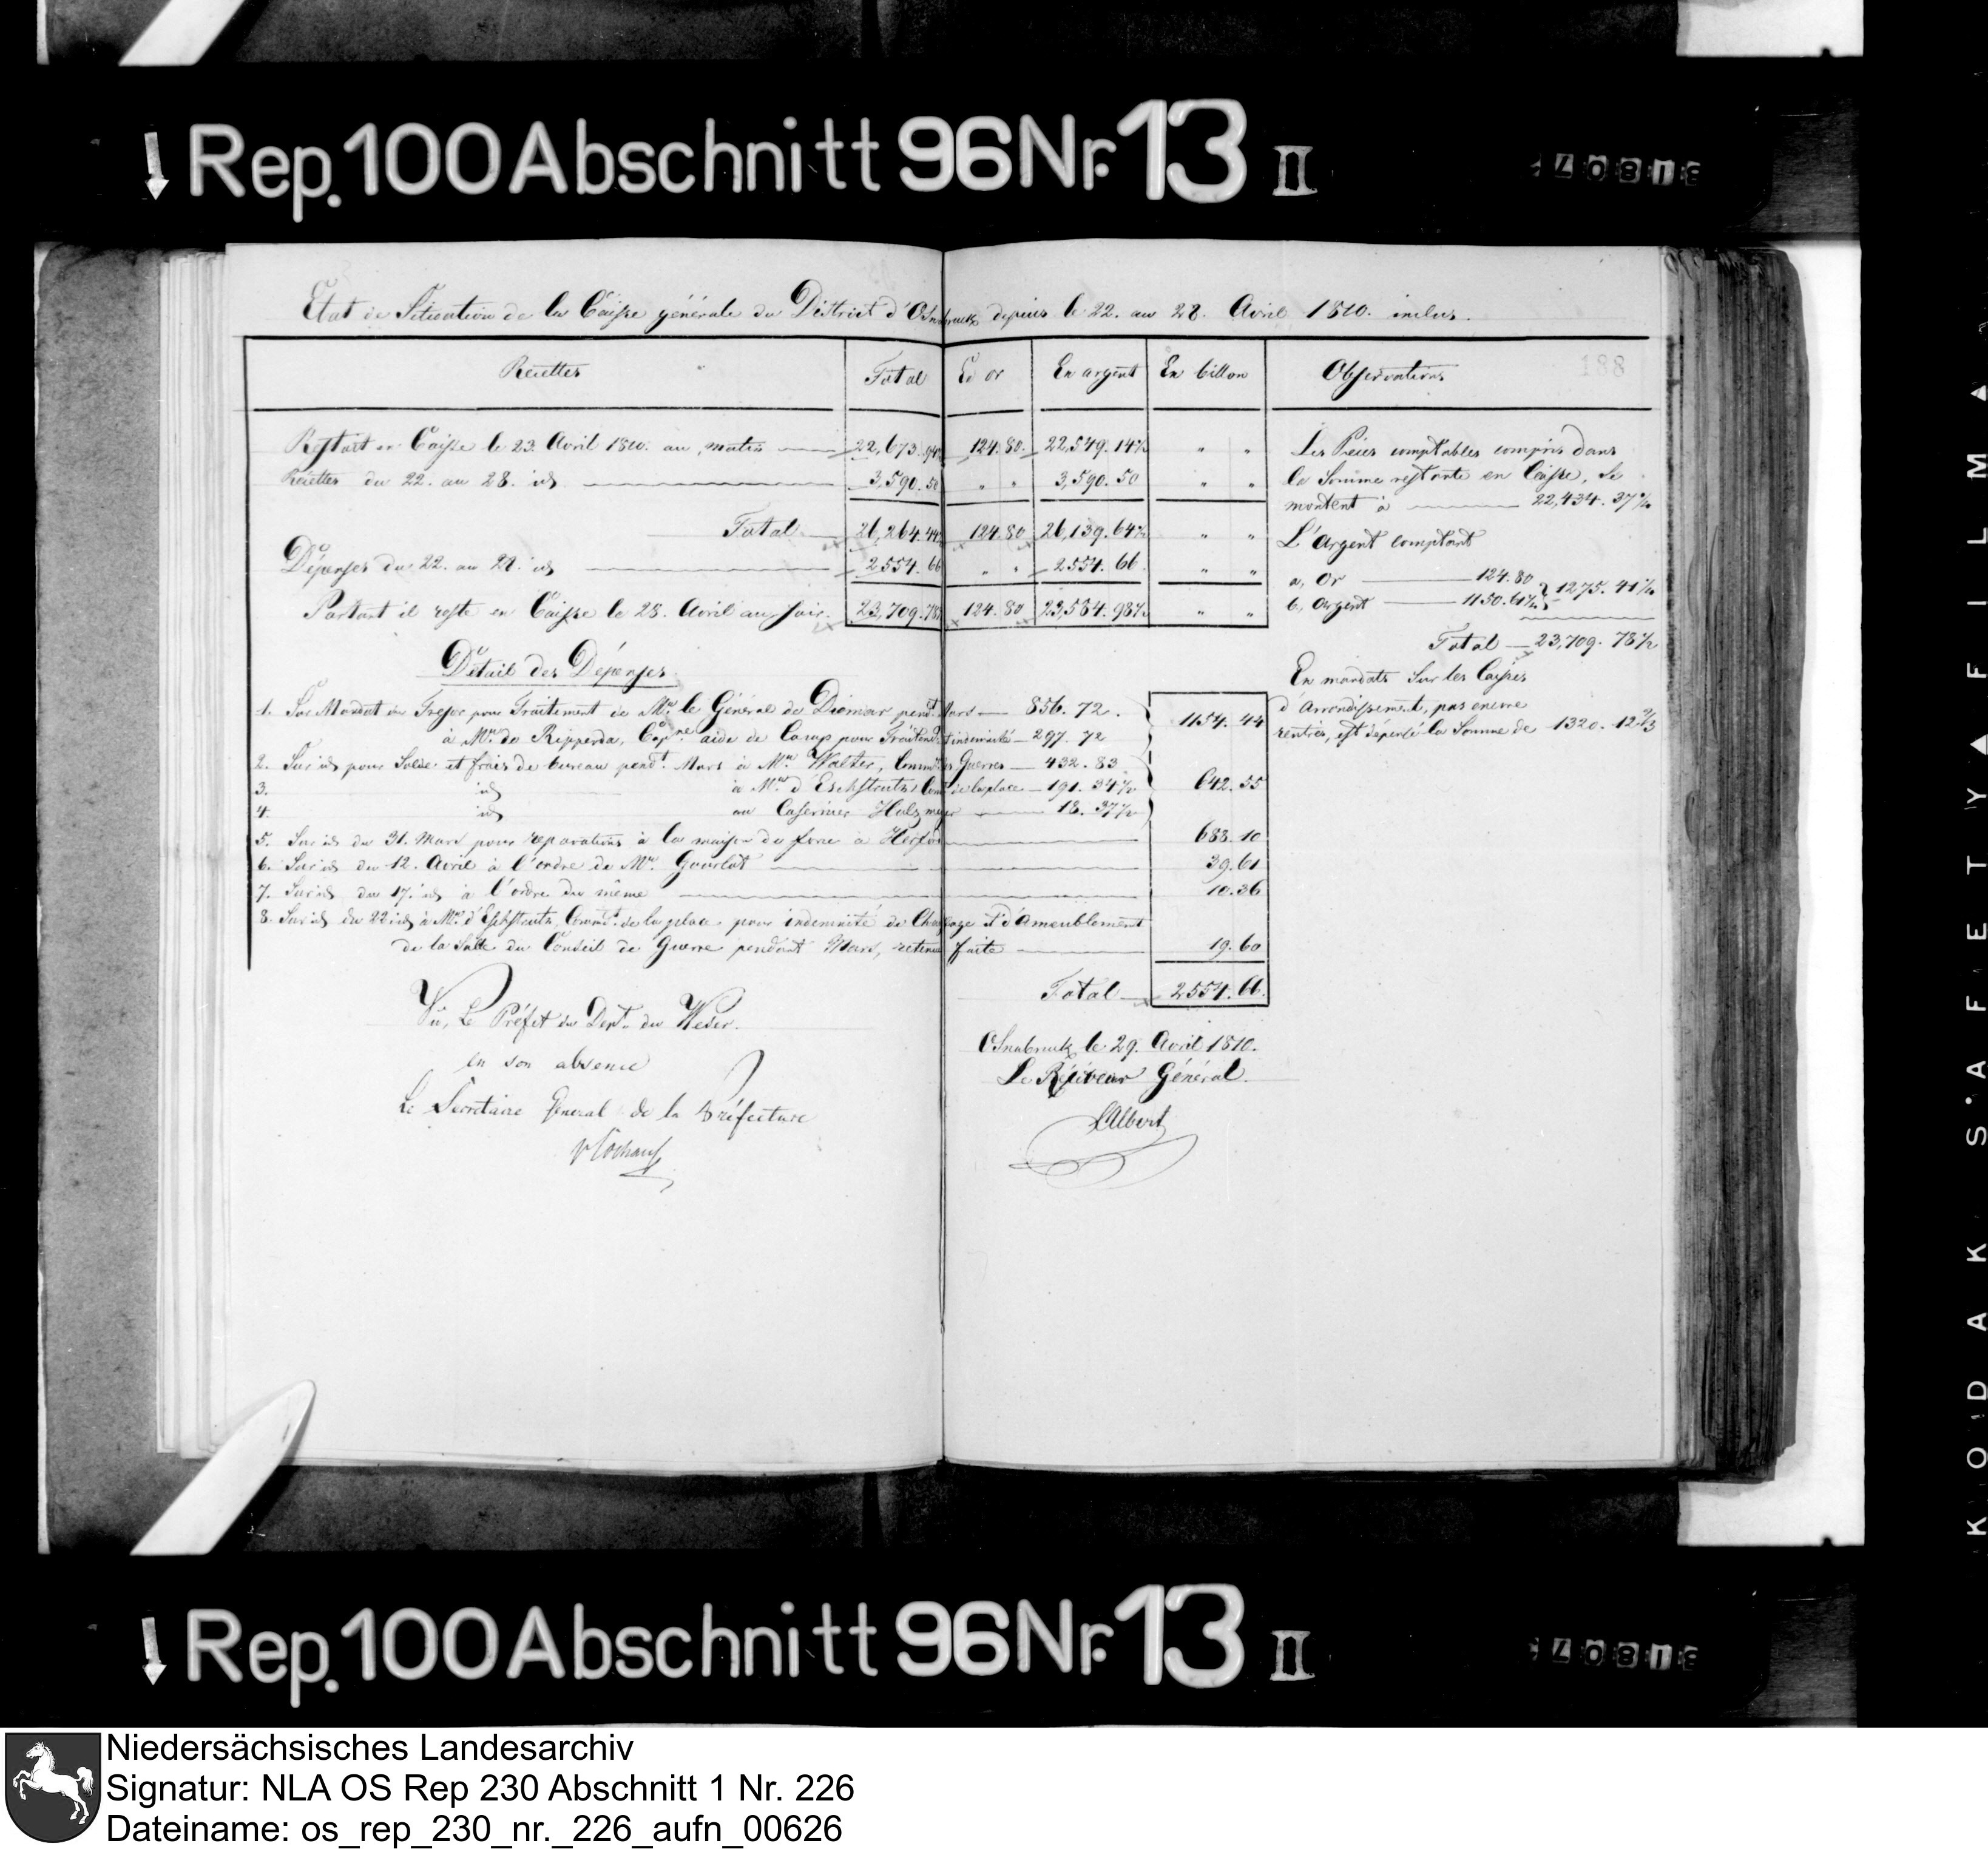 Rep. 100 Abschnitt 96 Nr. 13 II
Etat de Situation de la Caisse générale du District d'Osnabruck depuis le 22. au 28. Avril 1810. inclus.
Recettes Total En or En argent En billon Observations 188
Restant en Caisse le 23. Avril 1810. au matin 22,673.94½ 124.80. 22,549.14½ " "
Recettes du 22. au 28. id 3,590.50 " " 3,590.50 " "
Total 26,264.44½ 124.80 26,139.64½ " "
Dépenses du 22. au 28. id 2554.66 " " 2554.66 " "
Partant il reste en Caisse le 28. Avril au soir. 23,709.78½ 124.80 23,584.98½ " "
Les Pièces comptables compris dans
la Somme restante en Caisse, se
montent à 22,434.37½
L'Argent comptant
a, Or 124.80
b, Argent 1150.61½ } 1275.41½
Total 23,709.78½
En mandats Sur les Caisses
d'Arrondissement, pas encore
rentrés, est dépensé la Somme de 1320.12⅔
Détail des Dépenses.
1. Sur Mandat du Tresor pour Traitement de Mr. le Général de Diemar pendt. Mars 856.72.
à Mr. de Ripperda, Capne. aide de Camp pour Traitemt. et indemnité 297.72 } 1154.44
2. Sur id pour Solde et frais de bureau pendt. Mars à Mr. Walter, Commre. des Guerres 432.83
3. id à Mr. d'Eschstruth Comt. de la place 191.34½ } 642.55
4. id au Casernier Holzmeyer 18.37½
5. Sur id du 31. Mars pour reparations à la maison de force à Herford 688.10
6. Sur id du 12. Avril à l'ordre de Mr. Gourlat 39.61
7. Sur id du 17. id à l'ordre du même 10.36
8. Sur id du 22 id à Mr. d'Eschstruth Commt. de la place pour indemnité de Chauffage et d'Ameublement
de la Salle du Conseil de Guerre pendant Mars, retenue faite 19.60
Total 2554.66.
Vu, Le Préfet du Dept. du Weser.
en son absence
Le Secretaire General de la Préfecture
Osnabruck le 29. Avril 1810.
Le Receveur Général.
LAlbert
Rep. 100 Abschnitt 96 Nr. 13 II
KODAK SAFETY FILM
Niedersächsisches Landesarchiv
Signatur: NLA OS Rep 230 Abschnitt 1 Nr. 226
Dateiname: os_rep_230_nr._226_aufn_00626